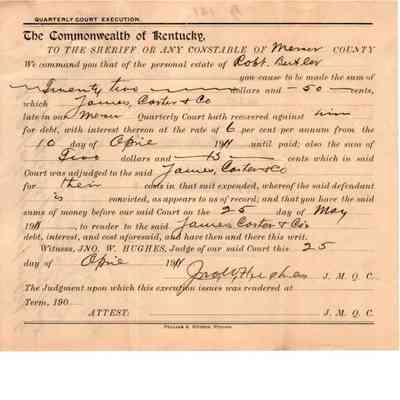 QUARTERLY COURT EXECUTION.
The Commonwealth of Kentucky,
TO THE SHERIFF OR ANY CONSTABLE OF Mercer COUNTY
We command you that of the personal estate of Robt. Butler
you cause to be made the sum of
Twenty two dollars and - 50 - cents,
which James, Coster & Co
late in our Mercer Quarterly Court hath recovered against him
for debt, with interest thereon at the rate of 6 per cent per annum from the
10 day of April 1911 until paid; also the sum of
Two dollars and - 15 - cents which in said
Court was adjudged to the said James, Coster & Co
for their costs in that suit expended, whereof the said defendant
is convicted, as appears to us of record; and that you have the said
sums of money before our said Court on the 25 day of May
1911, to render to the said James Coster & Co's
debt, interest, and cost aforesaid, and have then and there this writ.
Witness, JNO. W. HUGHES, Judge of our said Court this 25
day of April 1911
Jno W Hughes J. M. Q. C.
The Judgment upon which this execution issues was rendered at
Term, 190
ATTEST: J. M. Q. C.